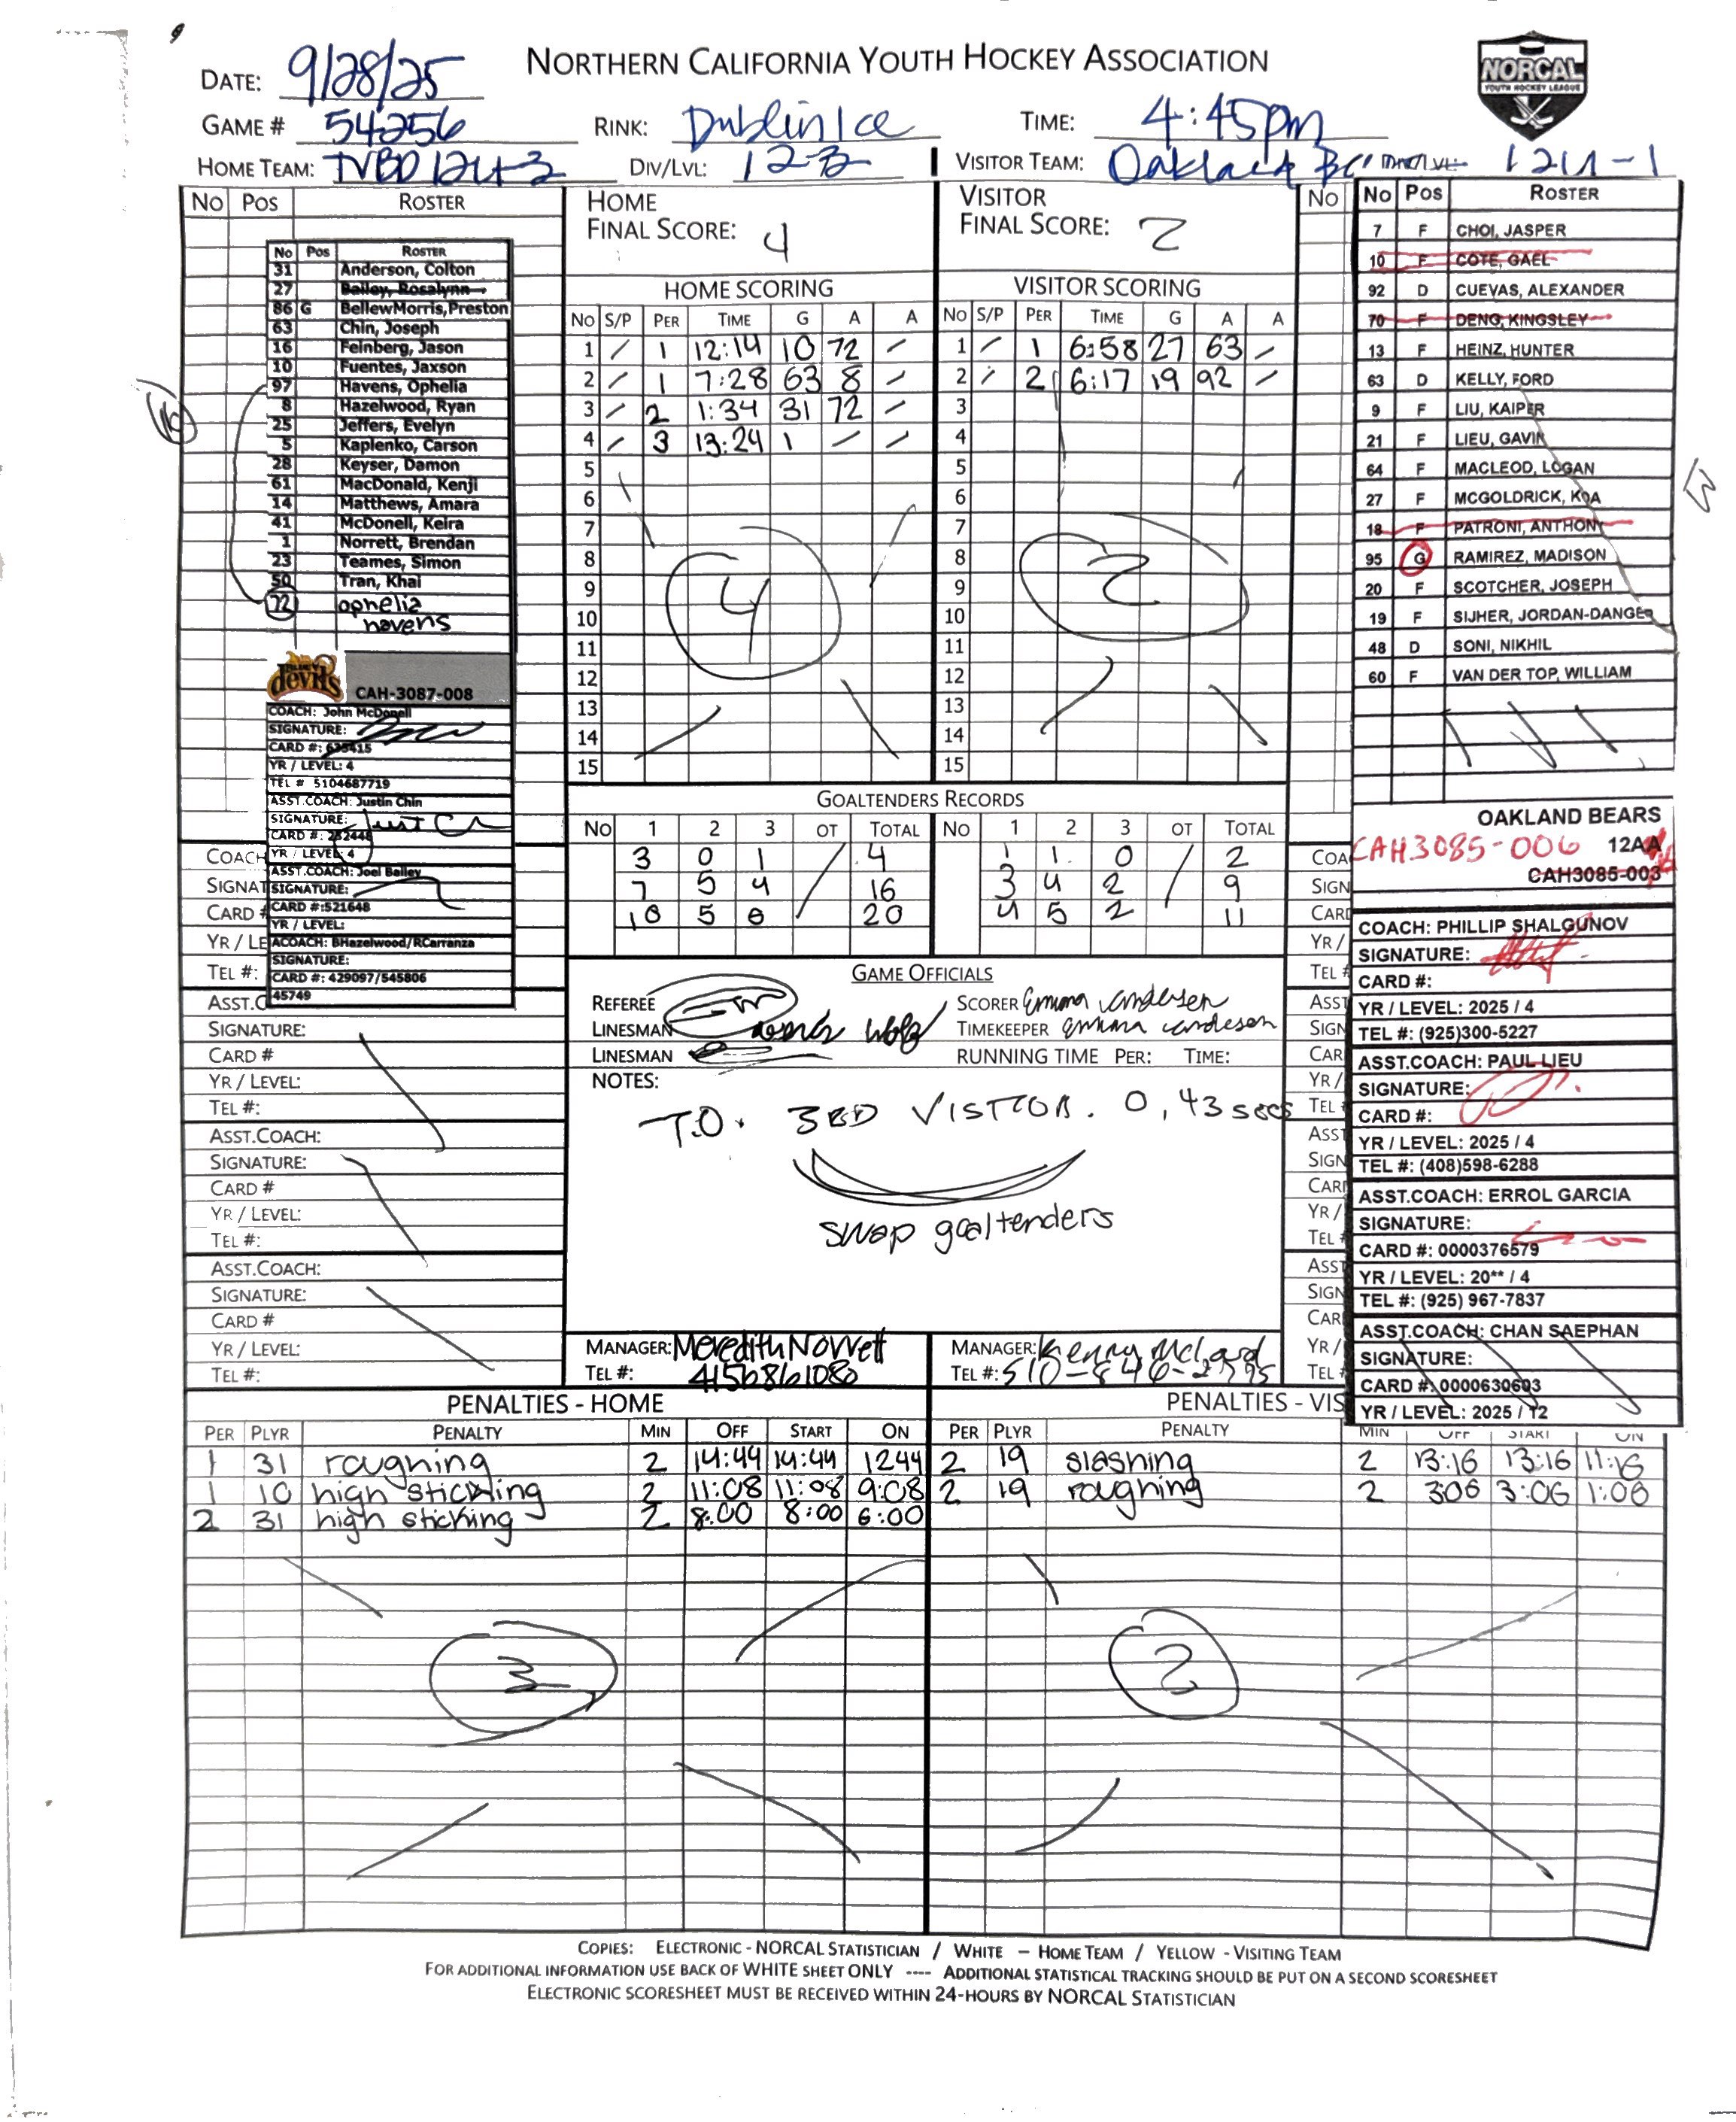 NORTHERN CALIFORNIA YOUTH HOCKEY ASSOCIATION
NORCAL
YOUTH HOCKEY LEAGUE
DATE: 9/28/25
GAME # 54256 RINK: Dublin Ice TIME: 4:45pm
HOME TEAM: TVBD 12U-3 DIV/LVL: 12-B VISITOR TEAM: Oakland 12U-1
No Pos ROSTER
No Pos ROSTER
31 Anderson, Colton
27 Bailey, Rosalynn
86 G BellewMorris, Preston
63 Chin, Joseph
16 Feinberg, Jason
10 Fuentes, Jaxson
97 Havens, Ophelia
8 Hazelwood, Ryan
25 Jeffers, Evelyn
5 Kaplenko, Carson
28 Keyser, Damon
61 MacDonald, Kenji
14 Matthews, Amara
41 McDonell, Keira
1 Norrett, Brendan
23 Teames, Simon
50 Tran, Khai
72 ophelia
havens
devils
CAH-3087-008
COACH: John McDonell
SIGNATURE:
CARD #: 635415
YR / LEVEL: 4
TEL # 5104687719
ASST.COACH: Justin Chin
SIGNATURE:
CARD #: 282448
YR / LEVEL: 4
ASST.COACH: Joel Bailey
SIGNATURE:
CARD #:521648
YR / LEVEL:
ACOACH: BHazelwood/RCarranza
SIGNATURE:
CARD #: 429097/545806
45749
COACH
SIGNAT
CARD #
YR / LE
TEL #:
ASST.C
SIGNATURE:
CARD #
YR / LEVEL:
TEL #:
ASST.COACH:
SIGNATURE:
CARD #
YR / LEVEL:
TEL #:
ASST.COACH:
SIGNATURE:
CARD #
YR / LEVEL:
TEL #:
HOME
FINAL SCORE: 4
HOME SCORING
No S/P PER TIME G A A
1 / 1 12:14 10 72 /
2 / 1 7:28 63 8 /
3 / 2 1:34 31 72 /
4 / 3 13:24 1 / /
5
6
7
8
9
10
11
12
13
14
15
4
VISITOR
FINAL SCORE: 2
VISITOR SCORING
No S/P PER TIME G A A
1 / 1 6:58 27 63 /
2 / 2 6:17 19 92 /
3
4
5
6
7
8
9
10
11
12
13
14
15
2
GOALTENDERS RECORDS
No 1 2 3 OT TOTAL No 1 2 3 OT TOTAL
3 0 1 / 4 1 1 0 / 2
7 5 4 / 16 3 4 2 / 9
10 5 / 20 4 5 2 / 11
GAME OFFICIALS
REFEREE
LINESMAN
LINESMAN
SCORER Emma
TIMEKEEPER emma
RUNNING TIME PER: TIME:
NOTES:
T.O. 3RD VISITOR. 0,43 secs
swap goaltenders
MANAGER: Meredith Norrett
TEL #: 4156861086
MANAGER: Kenny
TEL #: 510-846-
No
No Pos ROSTER
7 F CHOI, JASPER
10 F COTE, GAEL
92 D CUEVAS, ALEXANDER
70 F DENG, KINGSLEY
13 F HEINZ, HUNTER
63 D KELLY, FORD
9 F LIU, KAIPER
21 F LIEU, GAVIN
64 F MACLEOD, LOGAN
27 F MCGOLDRICK, KOA
18 F PATRONI, ANTHONY
95 G RAMIREZ, MADISON
20 F SCOTCHER, JOSEPH
19 F SIJHER, JORDAN-DANGER
48 D SONI, NIKHIL
60 F VAN DER TOP, WILLIAM
13
OAKLAND BEARS
CAH3085-006 12A
CAH3085-003
COACH: PHILLIP SHALGUNOV
SIGNATURE:
CARD #:
YR / LEVEL: 2025 / 4
TEL #: (925)300-5227
ASST.COACH: PAUL LIEU
SIGNATURE:
CARD #:
YR / LEVEL: 2025 / 4
TEL #: (408)598-6288
ASST.COACH: ERROL GARCIA
SIGNATURE:
CARD #: 0000376579
YR / LEVEL: 20** / 4
TEL #: (925) 967-7837
ASST.COACH: CHAN SAEPHAN
SIGNATURE:
CARD #: 0000630603
YR / LEVEL: 2025 / 12
PENALTIES - HOME
PER PLYR PENALTY MIN OFF START ON
1 31 roughing 2 14:44 14:44 1244
1 10 high stickling 2 11:08 11:08 9:08
2 31 high sticking 2 8:00 8:00 6:00
3
PENALTIES - VIS
PER PLYR PENALTY MIN OFF START ON
2 19 slashing 2 13:16 13:16 11:16
2 19 roughing 2 306 3:06 1:06
2
COPIES: ELECTRONIC - NORCAL STATISTICIAN / WHITE – HOME TEAM / YELLOW - VISITING TEAM
FOR ADDITIONAL INFORMATION USE BACK OF WHITE SHEET ONLY ---- ADDITIONAL STATISTICAL TRACKING SHOULD BE PUT ON A SECOND SCORESHEET
ELECTRONIC SCORESHEET MUST BE RECEIVED WITHIN 24-HOURS BY NORCAL STATISTICIAN